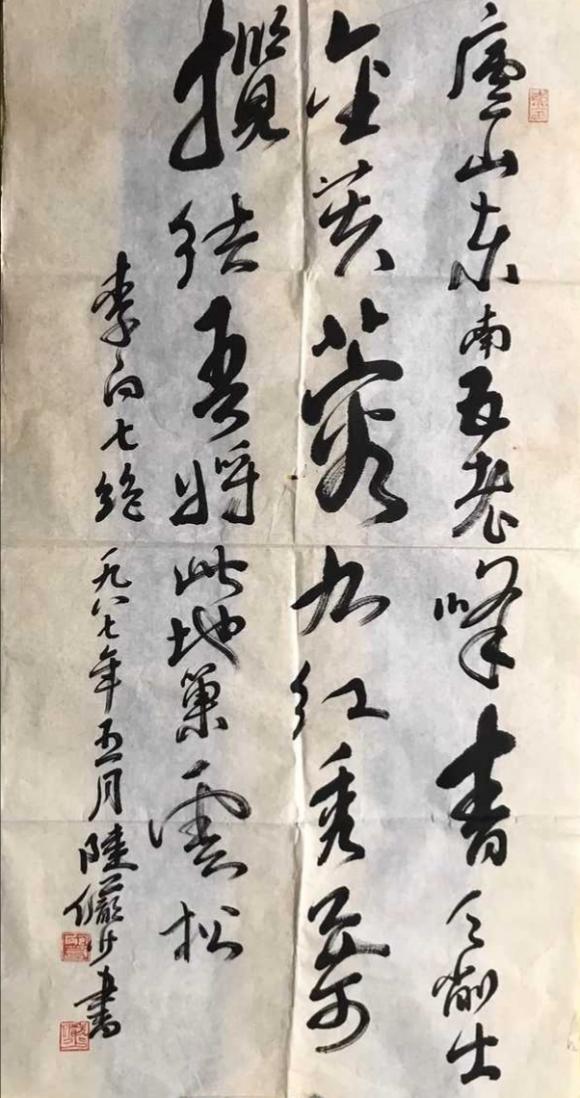 廬山東南五老峰青天削出
金芙蓉九红秀色可
攬結吾將此地巢雲松
李白七絕 一九八七年五月 陸儼少書